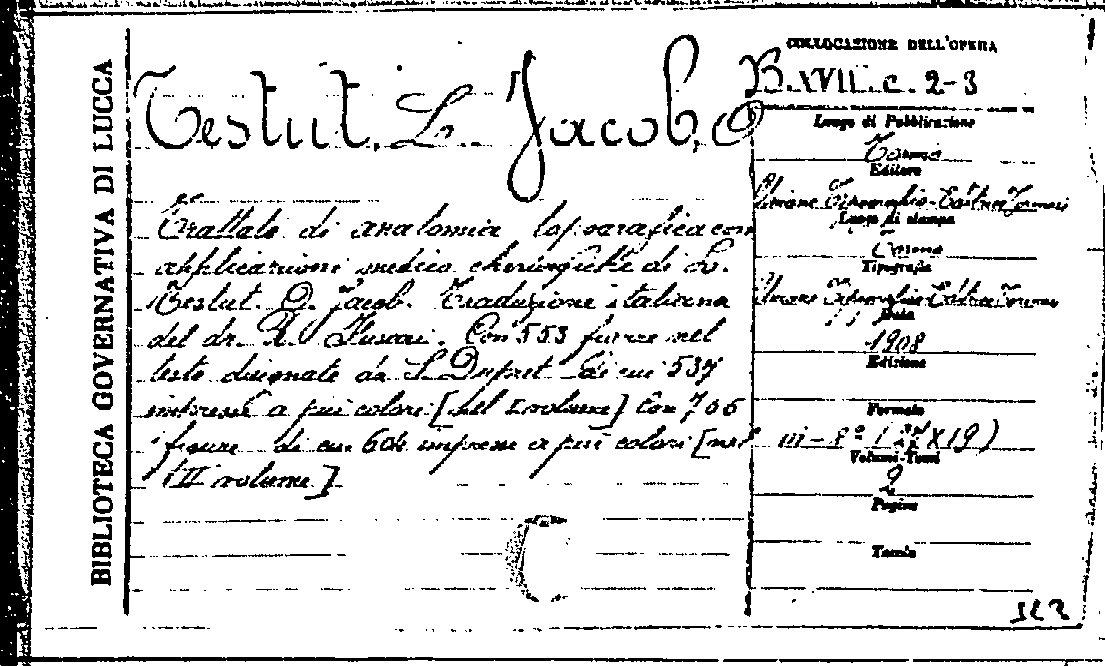 BIBLIOTECA GOVERNATIVA DI LUCCA
Testut, L. Jacob, O
Trattato di anatomia topografica con
applicazioni medico chirurgiche di L.
Testut. O. Jacob. Traduzione italiana
del dr. R. Con 553 figure nel
testo disegnate da S. Dupret di cui 537
impresse a più colori [nel I volume] Con 706
figure di cui 604 impresse a più colori [nel
II volume]
COLLOCAZIONE DELL'OPERA
B. XVII. c. 2-3
Luogo di Pubblicazione
Torino
Editore
Unione Tipografico-Editrice Torinese
Luogo di stampa
Torino
Tipografia
Unione Tipografico-Editrice Torinese
Data
1908
Edizione
Formato
in-8º ( X19)
Volumi-Tomi
2
Pagine
Tavole